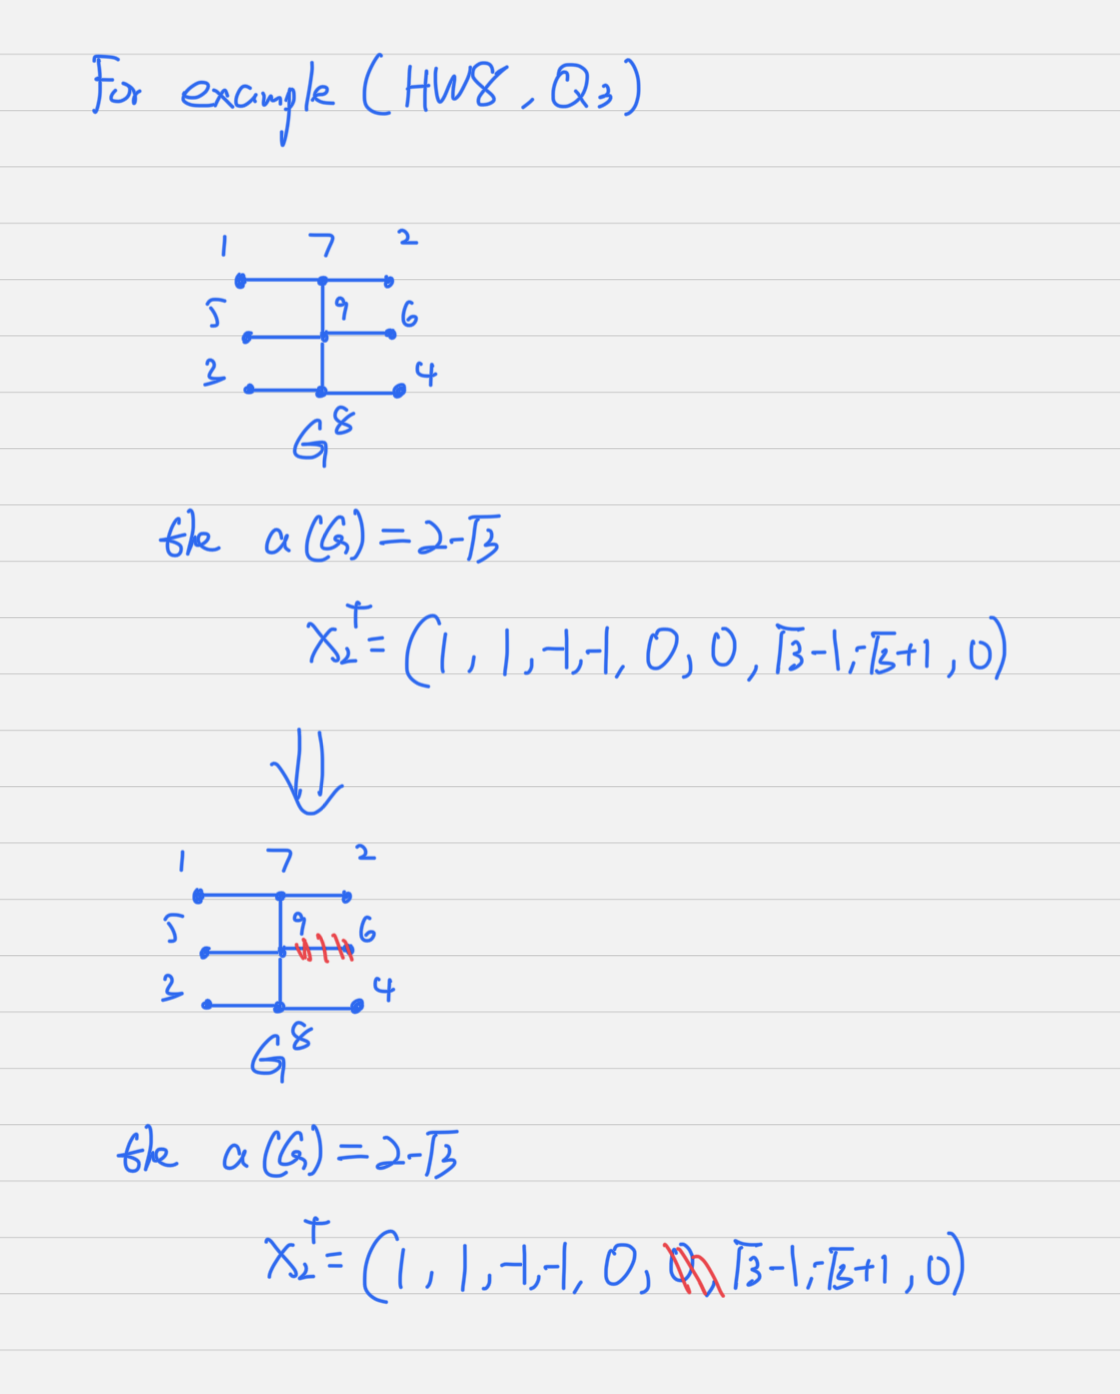 For example (HW8, Q3)
1 7 2
5 9 6
3 4
8
G
the a(G) = 2-√3
X₂ᵀ = (1, 1, -1, -1, 0, 0, √3-1, -√3+1, 0)
1 7 2
5 9 6
3 4
8
G
the a(G) = 2-√3
X₂ᵀ = (1, 1, -1, -1, 0, 0, √3-1, -√3+1, 0)